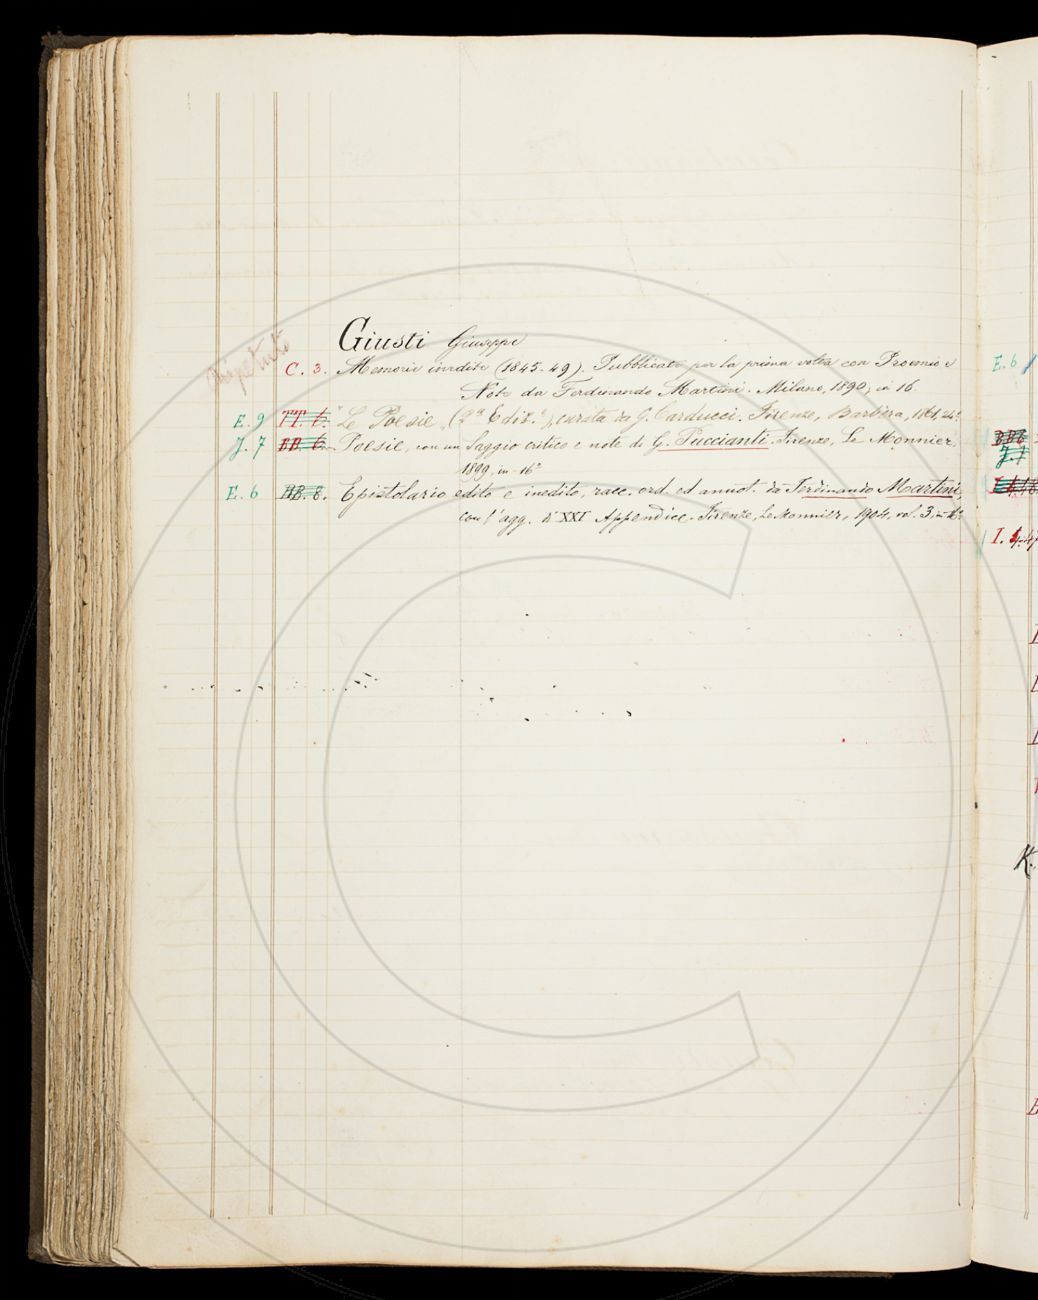 Giusti Giuseppe
ripetuto
C. 3. Memorie inedite (1845-49). Pubblicate per la prima volta con Proemio e
Note da Ferdinando Martini. Milano, 1890, in 16.
E. 9 TT. 6. Le Poesie, (2ª Ediz.e), curata da G. Carducci. Firenze, Barbèra, 1861 24º
J. 7 BB. 6. Poesie, con un Saggio critico e note di G. Puccianti. Firenze, Le Monnier,
1899, in-16º
E. 6 BB. 8. Epistolario edito e inedito, racc. ord. ed annot. da Ferdinando Martini,
con l'agg. di XXI Appendice. Firenze, Le Monnier, 1904, vol. 3, in-16º
E. 6
BB6
J. 7
I.
K.